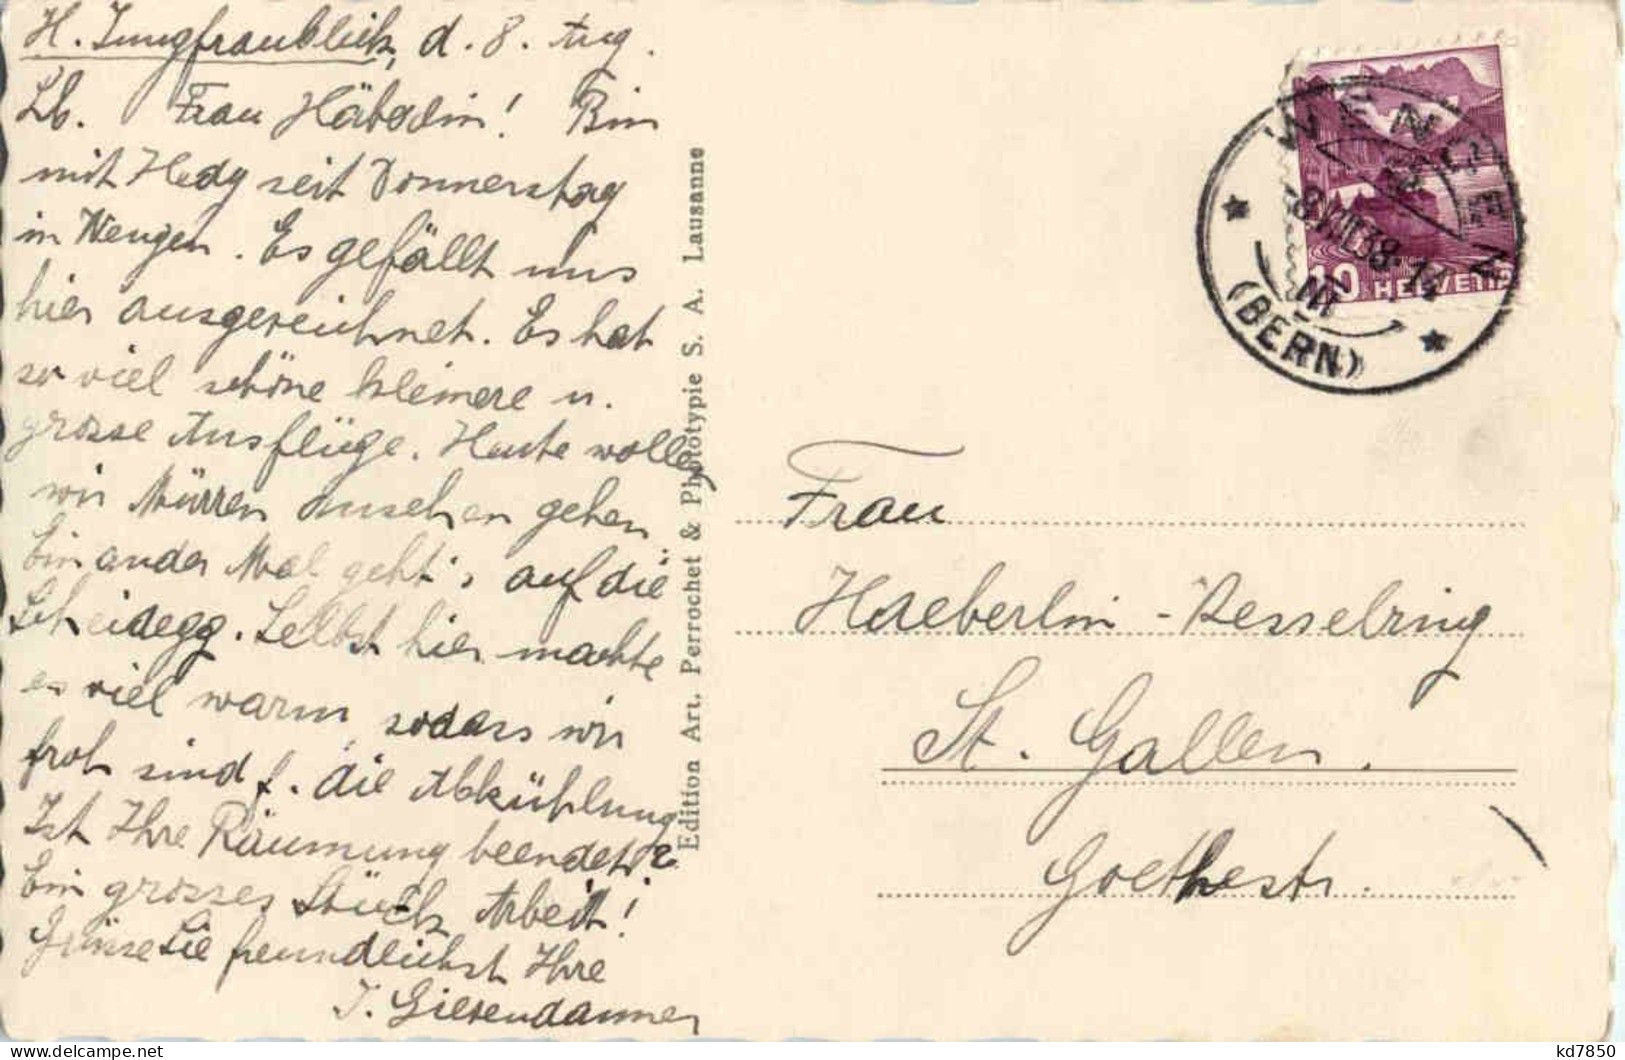 H. Jungfraublick, d. 8. Aug.
Lb. Frau Häberlin! Bin
mit Hedy seit Donnerstag
in Wengen. Es gefällt uns
hier ausgezeichnet. Es hat
so viel schöne kleinere u.
grosse Ausflüge. Heute wollen
wir Mürren ansehen gehen.
Ein ander Mal geht's auf die
Scheidegg. Selbst hier machte
es viel warm, sodass wir
froh sind f. die Abkühlung
Ist Ihre Räumung beendet?
Ein grosses Stück Arbeit!
Grüsse Sie freundlichst Ihre
J. Giesendanner
Edition Art. Perrochet & Phototypie S. A. Lausanne
WENGEN
8.VIII.38-14
III
(BERN)
10 HELVETIA
Frau
Haeberlin-Kesselring
St. Gallen.
Goethestr.
kd7850